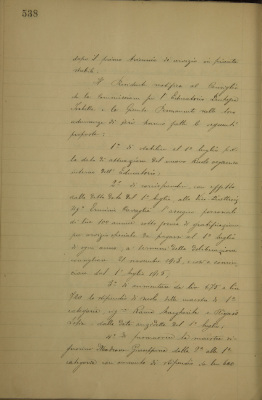 538
dopo il primo Avviso di servizio in pianta
stabile.
Il Presidente notifica al Consiglio
che la Commissione per l'Educatorio
e la Giunta Permanente nella loro
adunanza di ieri hanno fatto le seguenti
proposte:
1° di stabilire al 1° luglio p.v.
la data di attuazione del nuovo Ruolo organico
interno dell'Educatorio;
2° di corrispondere, con effetto
dalla detta data del 1° luglio, alla Vice Direttrice
Sig.ª Erminia l'assegno personale
di lire 200 annue sotto forma di gratificazione
per servizio da pagarsi al 1° luglio
di ogni anno, a termini della deliberazione
consigliare 21 novembre 1913, e ciò a comin-
ciare dal 1° luglio 1915;
3° di aumentare da lire 675 a lire
720 lo stipendio di ruolo delle maestre di 1ª
categoria sig.re Margherita e
dalla data suddetta del 1° luglio;
4° di promuovere la maestra in-
feriore Giuseppina dalla 2ª alla 1ª
categoria con aumento di stipendio da lire 600